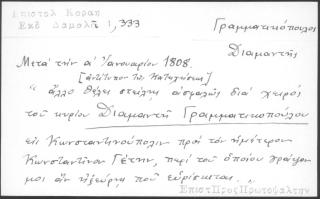 Επιστολ Κοραη
Εκδ Δαμαλᾶ 1,333
Γραμματικόπουλος
Διαμαντῆς
Μετὰ τὴν α' Ἰανουαρίου 1808.
[ἀντίτυπον τῆς Κατηχήσεως]
"ἄλλο θέλει στείλῃ ἀσφαλῶς διὰ χειρὸς
τοῦ κυρίου Διαμαντῆ Γραμματικοπούλου
εἰς Κωνσταντινούπολιν πρὸς τὸν ἡμέτερον
Κωνσταντῖνον Γέτην, περὶ τοῦ ὁποίου γράψον
μοι ἂν ἠξεύρῃς ποῦ εὑρίσκεται.
ΕπιστΠροςΠρωτοψαλτην